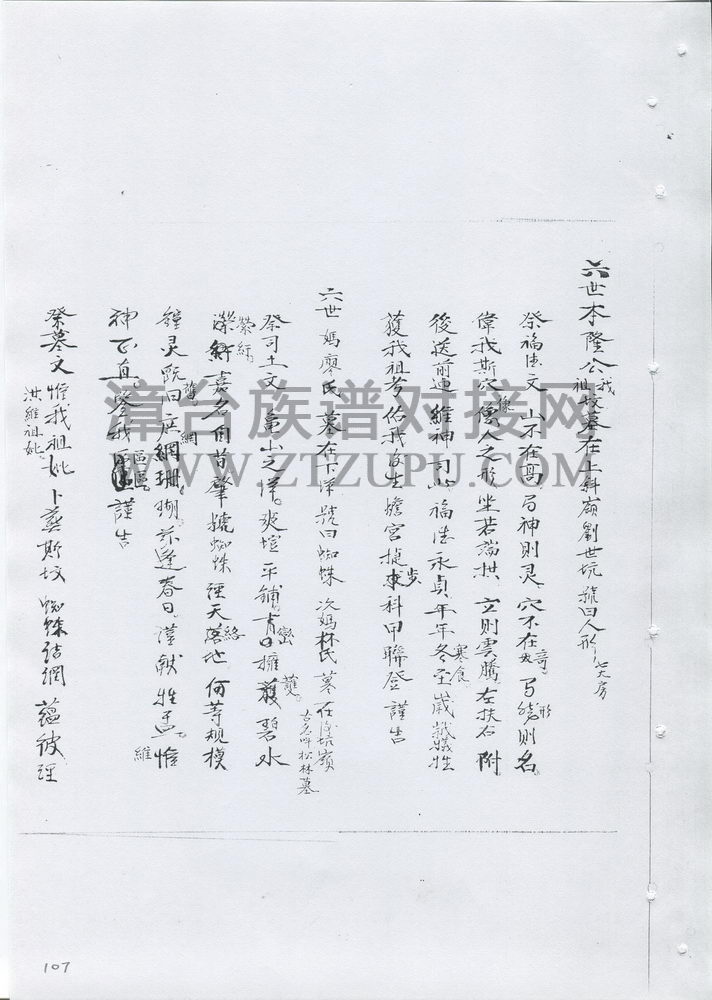 六世本隆公我祖坟墓在上斜嶺劉世坑 號曰人形 七大房
祭福德文 山不在高 有神則灵 穴不在大奇 有形則名
偉我斯穴 像人之形 坐若端拱 立則雲騰 左扶右附
後送前迎 維神司 福德永貞 年年冬至寒食 牲
護我祖考 佑我後生 蟾宮捷步 科甲聯登 謹告
六世媽廖氏 墓在下洋 號曰蜘蛛 次媽林氏 墓在嶺 古名呼松林墓
祭司土文 龜山之洋 爽塏平鋪 青巒擁護 碧水
縈紆 嘉名自昔 肇號蜘蛛 經天絡地 何等規模
鐘灵既旧 庶網珊瑚 茲逢春日 謹献牲 惟維
神正直 鑒我區區 謹告
祭墓文 惟我祖妣 洪維祖妣 卜葬斯坟 蜘蛛結網 蘊彼經
漳台族谱对接网
WWW.ZTZUPU.COM
107